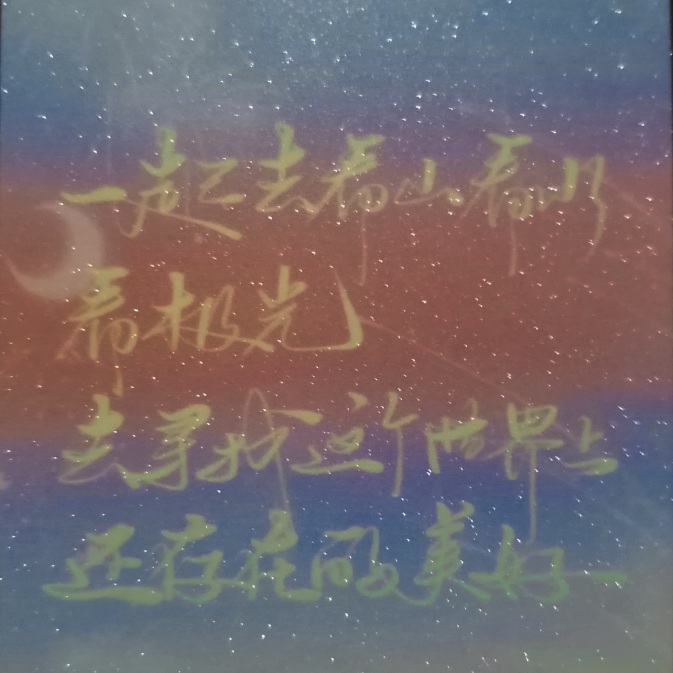 一起去看山看川
看极光
去寻找这个世界上
还存在的美好